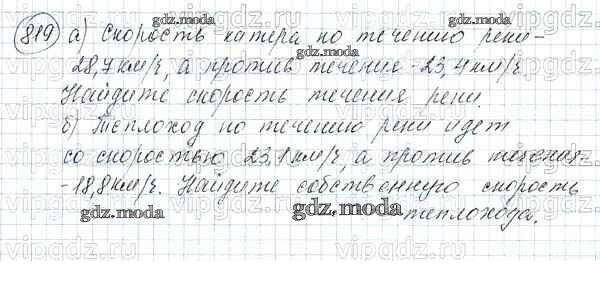 819 а) Скорость катера по течению реки -
28,7 км/ч, а против течения - 23,4 км/ч.
Найдите скорость течения реки.
б) Теплоход по течению реки идет
со скоростью 23,1 км/ч, а против течения -
- 18,8 км/ч. Найдите собственную скорость
теплохода.
gdz.moda
gdz.moda
gdz.moda
gdz.moda
gdz.moda
gdz.moda
gdz.moda